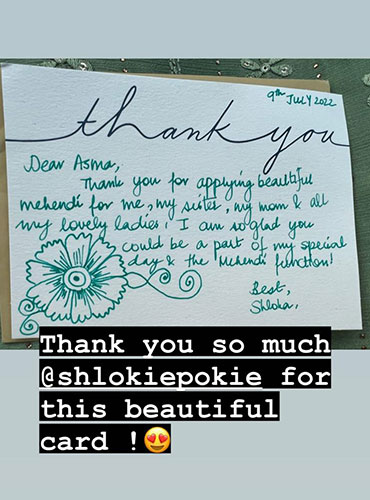 9th JULY 2022
thank you
Dear Asma,
Thank you for applying beautiful
mehendi for me, my sister, my mom & all
my lovely ladies! I am so glad you
could be a part of my special
day & the Mehendi function!
Best,
Shloka,
Thank you so much
@shlokiepokie for
this beautiful
card !😍